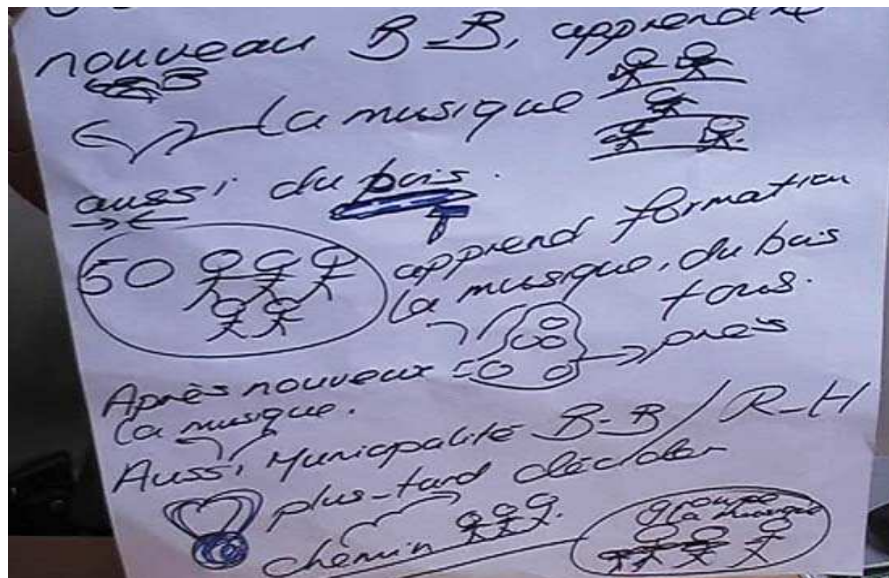 nouveau B-B, apprendre
la musique
aussi du bois.
50 apprend formation
la musique, du bois
tous.
Après nouveaux 50 près
la musique.
Aussi Municipalité B-B / R-H
plus-tard décider
chemin
groupe
la musique